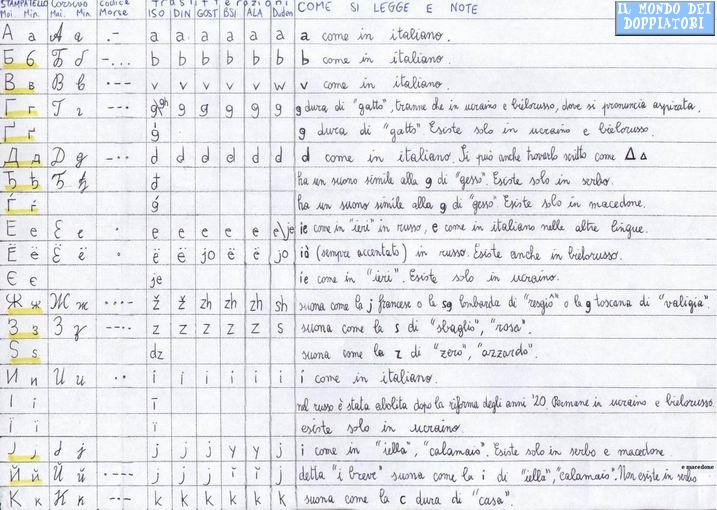 STAMPATELLO CORSIVO Codice Traslitterazioni COME SI LEGGE E NOTE
Mai. Min. Mai. Min. Morse ISO DIN GOST BSI ALA Duden
IL MONDO DEI DOPPIATORI
А а А а .- a a a a a a a come in italiano.
Б б Б б -... b b b b b b b come in italiano.
В в В в .-- v v v v v w v come in italiano.
Г г Г г --. g\gh g g g g g g dura di "gatto", tranne che in ucraino e bielorusso, dove si pronuncia aspirata.
Ґ ґ g̀ g dura di "gatto". Esiste solo in ucraino e bielorusso.
Д д Д д -.. d d d d d d d come in italiano. Si può anche trovarlo scritto come Δ Δ
Ђ ђ Ђ ђ đ ha un suono simile alla g di "gesso". Esiste solo in serbo.
Ѓ ѓ ǵ ha un suono simile alla g di "gesso". Esiste solo in macedone.
Е е Е е . e e e e e e\je ie come in "ieri" in russo, e come in italiano nelle altre lingue.
Ё ё Ё ё . ë ë jo ë ë jo iò (sempre accentato) in russo. Esiste anche in bielorusso.
Є є je ie come in "ieri". Esiste solo in ucraino.
Ж ж Ж ж ...- ž ž zh zh zh sh suona come la j francese o la sg lombarda di "resgiô" o la g toscana di "valigia".
З з З з --.. z z z z z s suona come la s di "sbaglio", "rosa".
Ѕ ѕ dz suona come la z di "zero", "azzardo".
И и И и .. i i i i i i i come in italiano.
І і ī nel russo è stata abolita dopo la riforma degli anni '20. Permane in ucraino e bielorusso.
Ї ї ï esiste solo in ucraino.
Ј ј Ј ј j j j y y j i come in "iella", "calamaio". Esiste solo in serbo e macedone
Й й Й й .--- j j j ĭ ĭ j detta "i breve" suona come la i di "iella", "calamaio". Non esiste in serbo e macedone
К к К к -.- k k k k k k suona come la c dura di "casa".